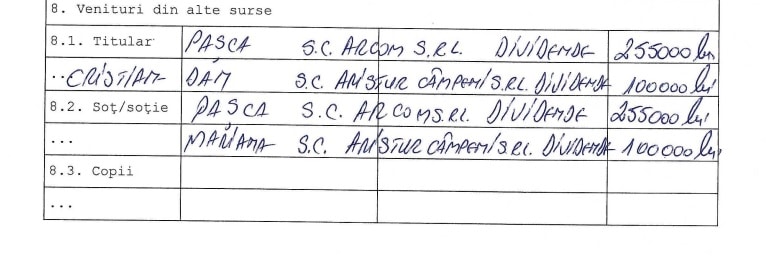 8. Venituri din alte surse
8.1. Titular PAȘCA S.C. ARCOM S.R.L. DIVIDENDE 255000 lei
...CRISTIAN- DAN S.C. ARISTUR CÂMPENI S.RL. DIVIDENDE 100000 lei
8.2. Soț/soție PAȘCA S.C. ARCOM S.RL. DIVIDENDE 255000 lei
... MARIANA S.C. ARISTUR CÂMPENI S.RL. DIVIDENDE 100000 lei
8.3. Copii
...